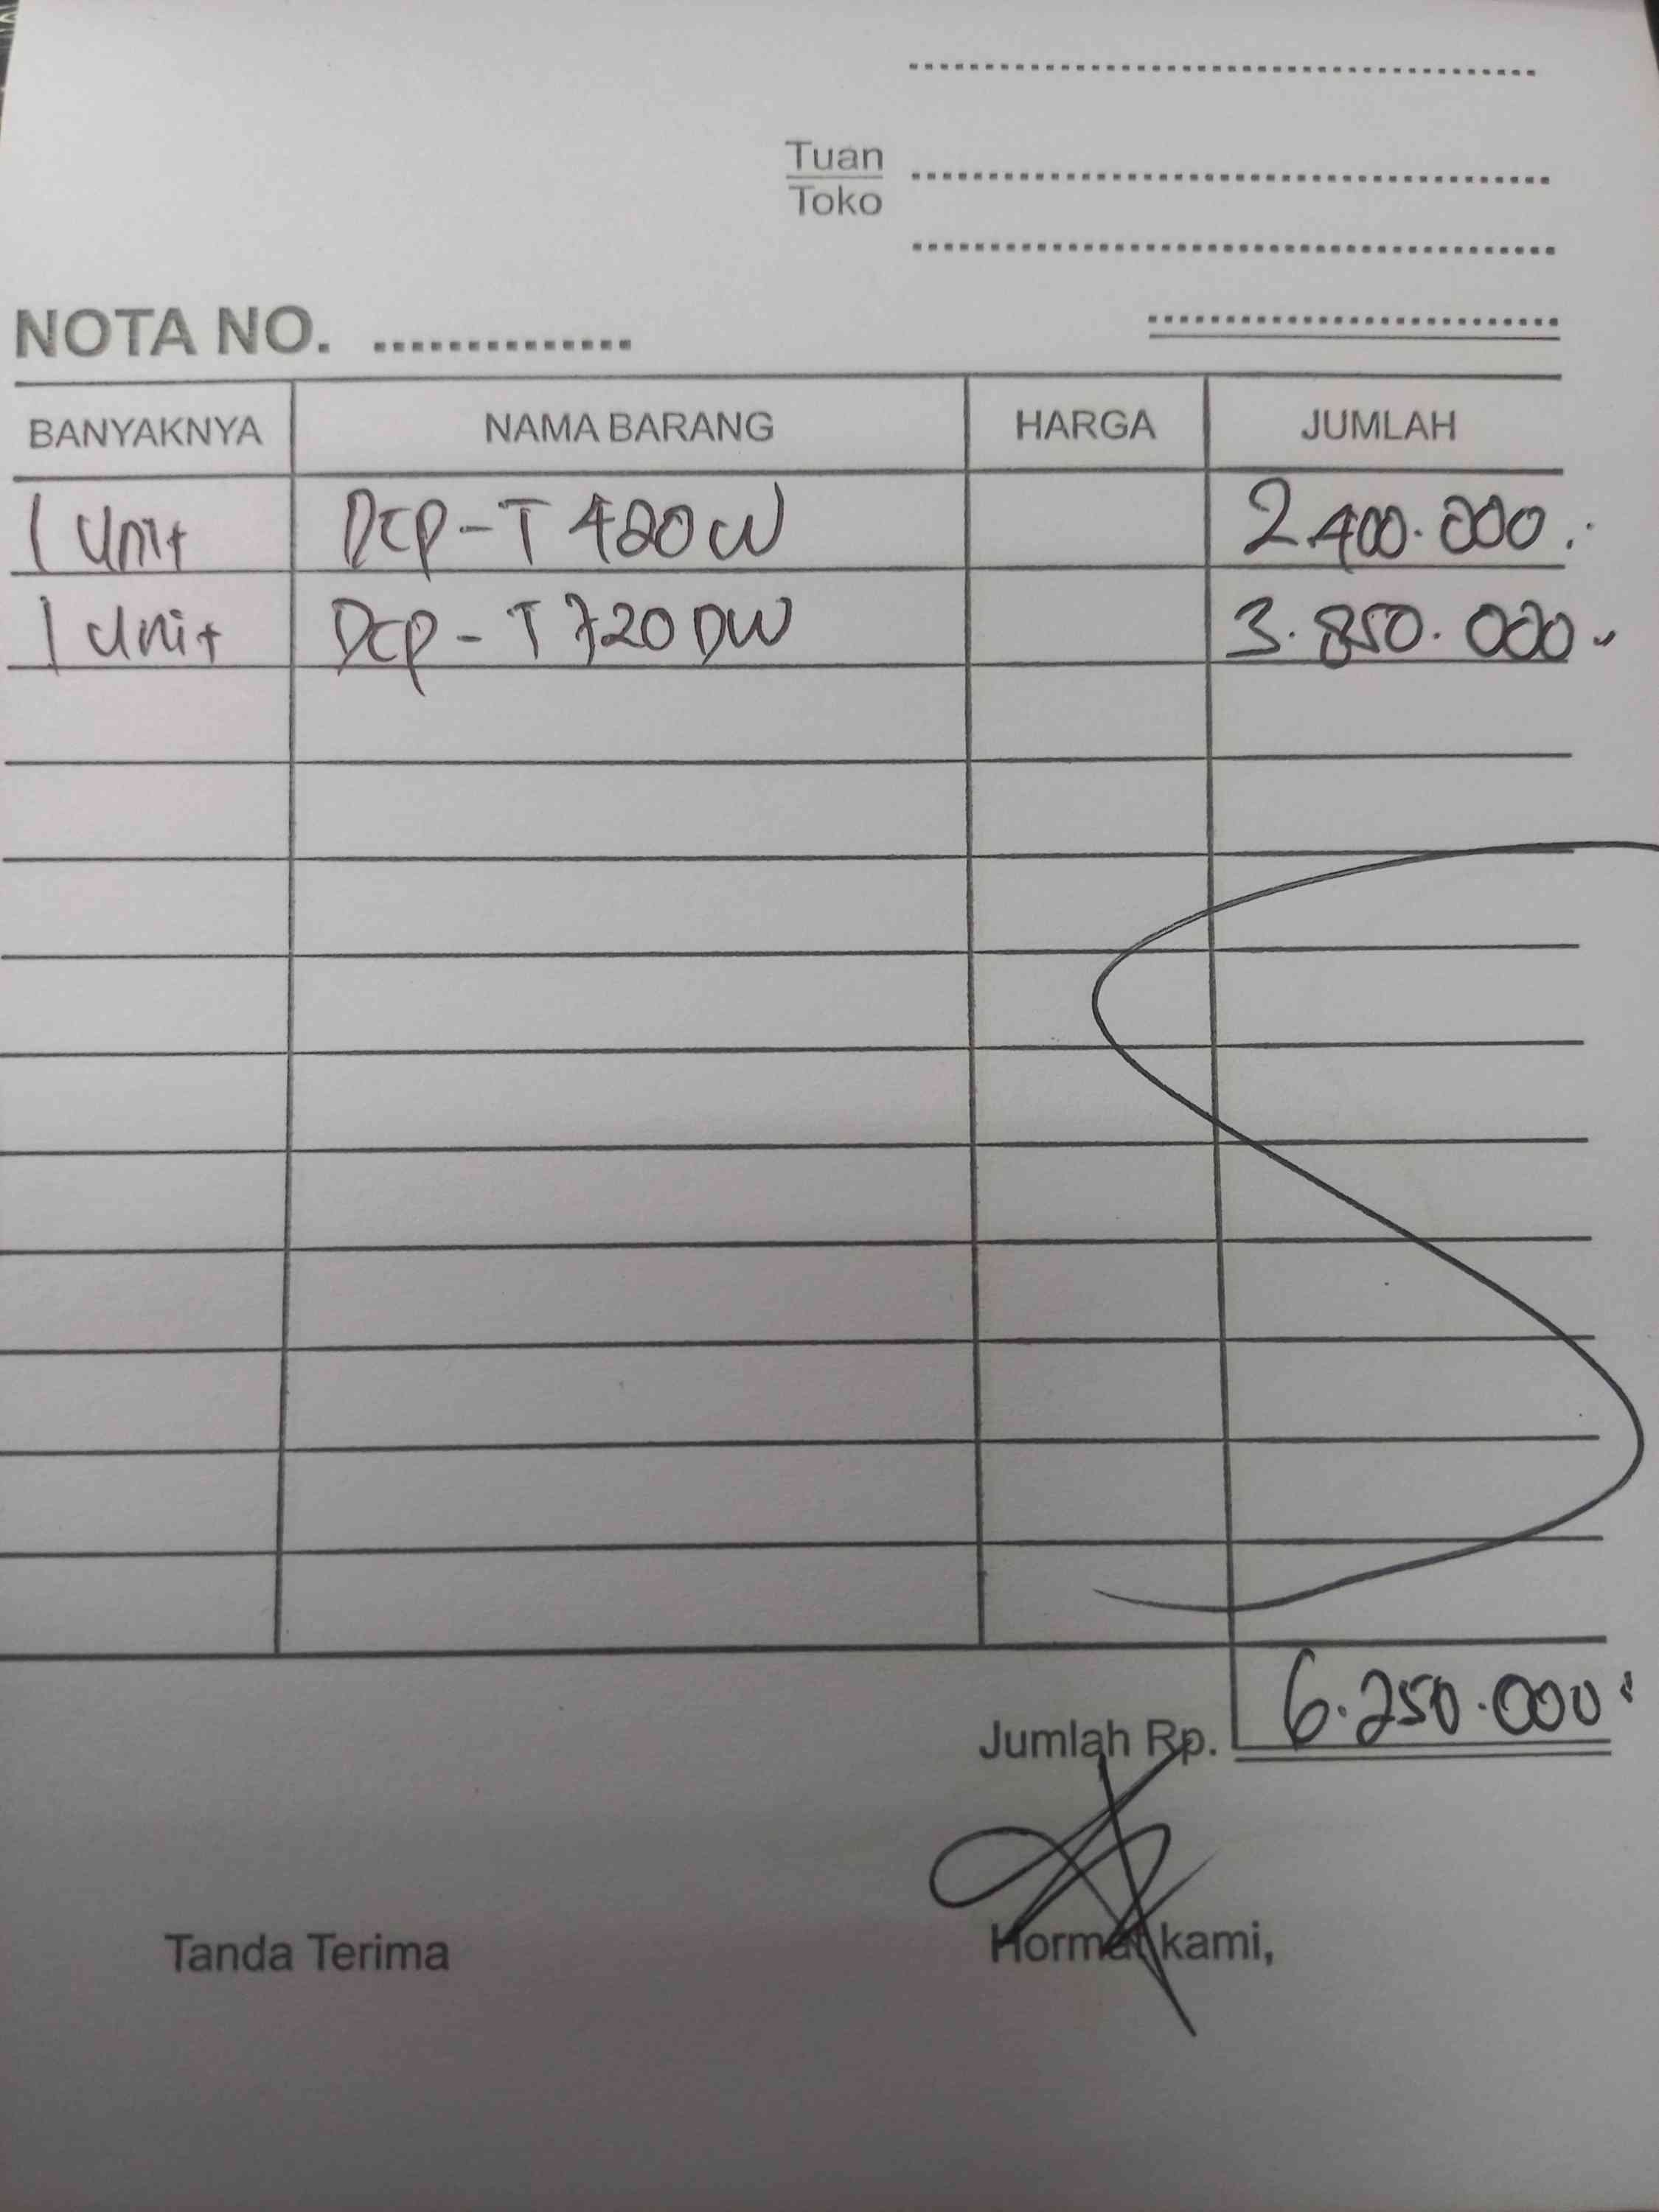 Tuan
Toko
NOTA NO. ..............
BANYAKNYA NAMA BARANG HARGA JUMLAH
1 Unit DCP-T420W 2.400.000.
1 Unit DCP-T720DW 3.850.000.
Jumlah Rp. 6.250.000
Tanda Terima Hormat kami,